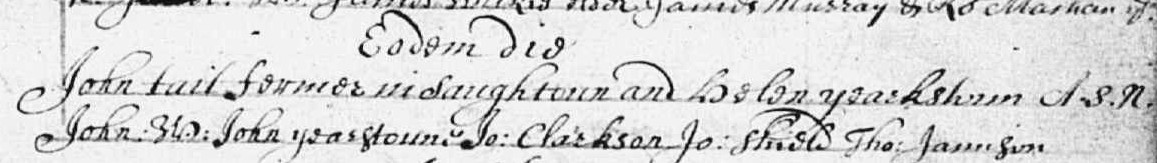 James Murray & Ro Markan
Eodem die
John tait fermer in Saughtoun and Helen yearkstoun A.S.N.
John. W: John yearstoune Jo: Clarkson Jo: Shield Tho: Jamison